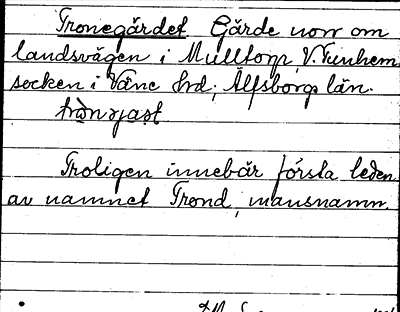 Tronegärdet Gärde norr om
landsvägen i Mulltorp, V. Tunhem
socken i Väne hrd, Älfsborgs län.
Troligen innebär första leden
av namnet Trond, mansnamn.